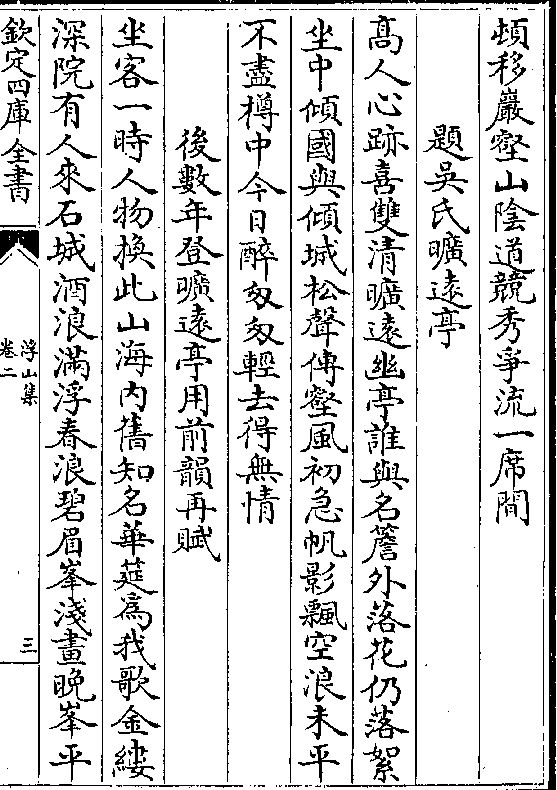 頓移巖壑山陰道競秀爭流一席間
題吳氏曠遠亭
髙人心跡喜雙清曠遠幽亭誰與名簷外落花仍落絮
坐中傾國與傾城松聲傳壑風初急帆影飄空浪未平
不盡樽中今日醉匆匆輕去得無情
後數年登曠遠亭用前韻再賦
坐客一時人物換此山海内舊知名華筵為我歌金縷
深院有人來石城酒浪滿浮春浪碧眉峯淺畫晩峯平
欽定四庫全書
浮山集
卷二
三